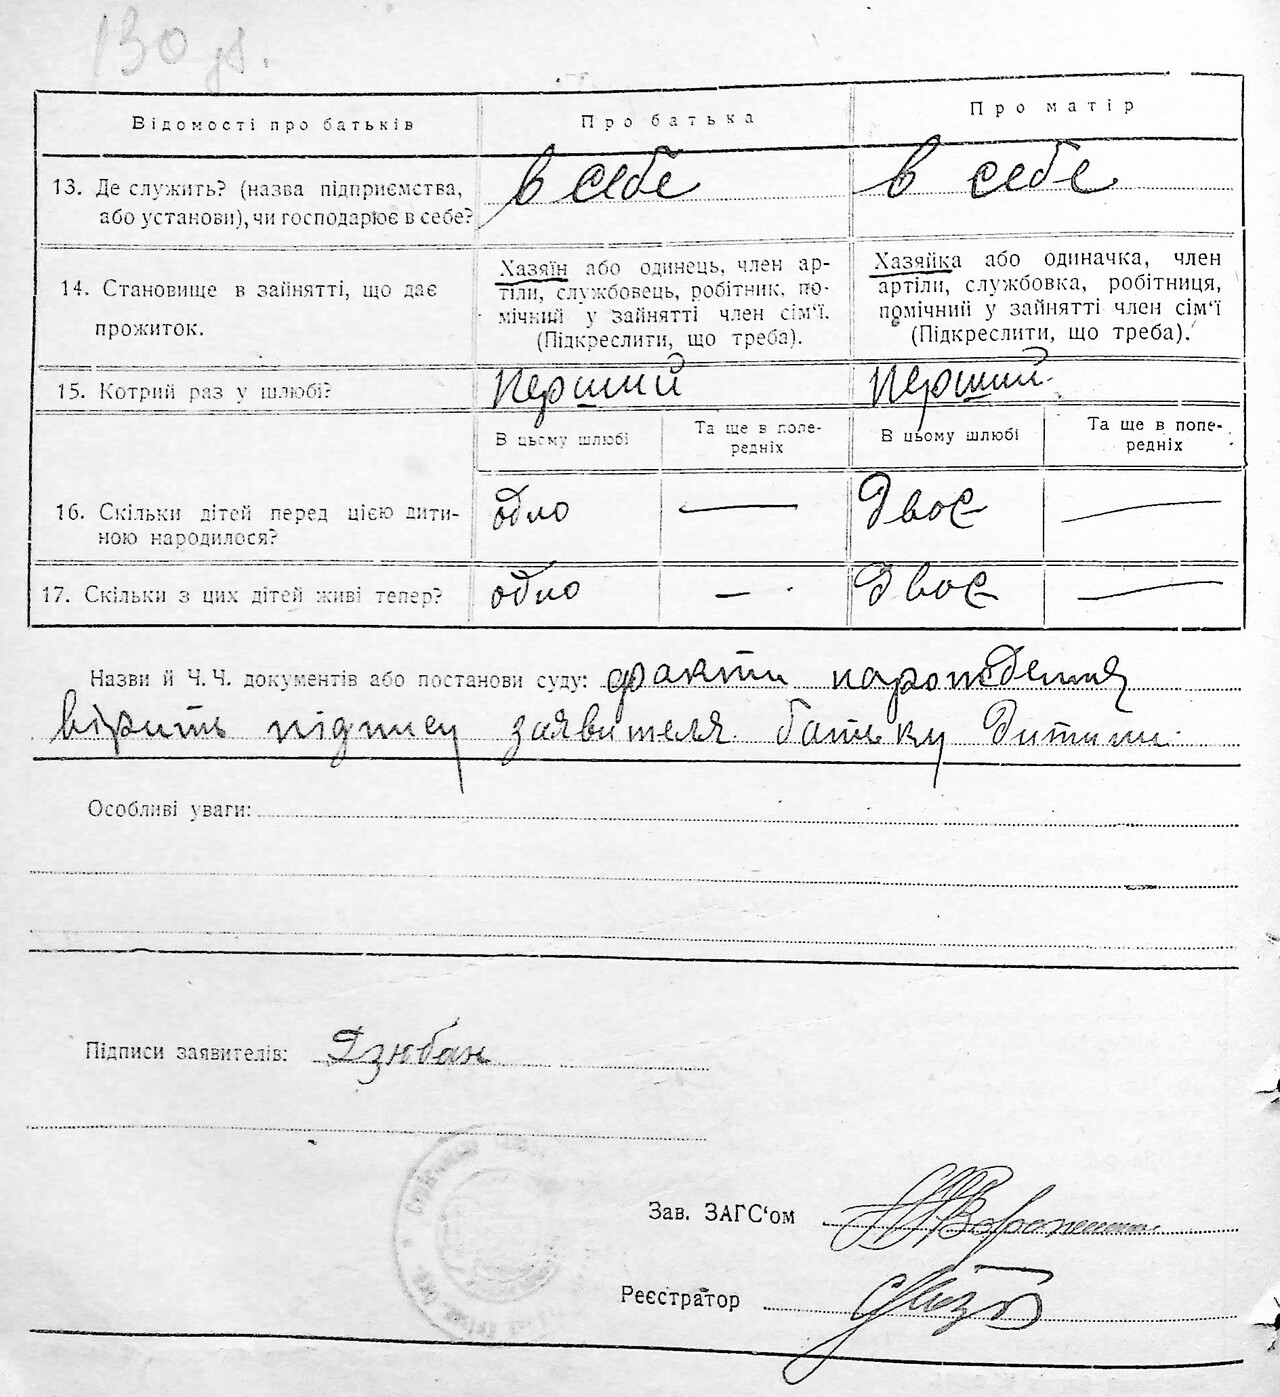 130
Відомості про батьків
Про батька
Про матір
13. Де служить? (назва підприємства,
або установи), чи господарює в себе?
в себе
в себе
14. Становище в зайнятті, що дає
прожиток.
Хазяїн або одинець, член ар-
тіли, службовець, робітник, по-
мічний у зайнятті член сім'ї.
(Підкреслити, що треба).
Хазяйка або одиначка, член
артіли, службовка, робітниця,
помічний у зайнятті член сім'ї
(Підкреслити, що треба).
15. Котрий раз у шлюбі?
перший
перший
В цьому шлюбі
Та ще в попе-
редніх
В цьому шлюбі
Та ще в попе-
редніх
16. Скільки дітей перед цією дити-
ною народилося?
одно
—
Двоє
—
17. Скільки з цих дітей живі тепер?
одно
—
Двоє
—
Назви й Ч. Ч. документів або постанови суду: факти народження
вірить підпису заявителя батьку дитини
Особливі уваги:
Підписи заявителів: Дзюбан
Зав. ЗАГС'ом
Реєстратор